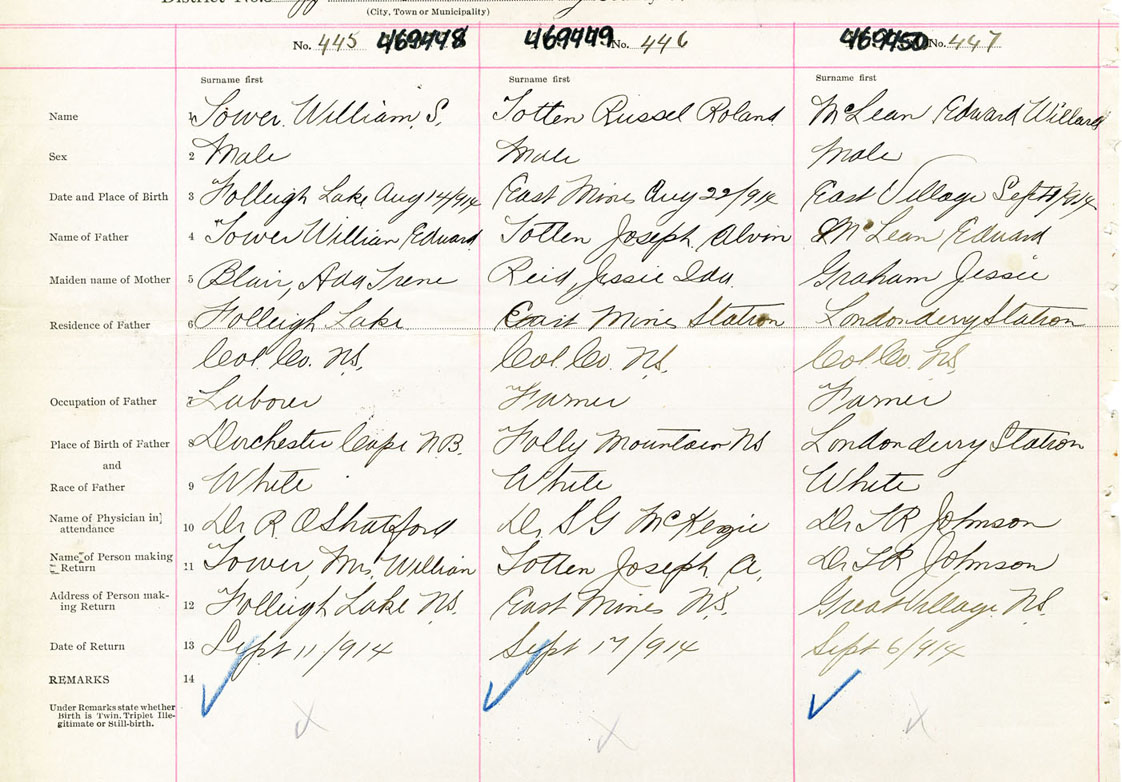 District No.
(City, Town or Municipality)
No. 445 469448 469449 No. 446 469450 No. 447
Surname first Surname first Surname first
Name 1 Tower William S. Totten Russel Roland McLean Edward Willard
Sex 2 Male Male Male
Date and Place of Birth 3 Folleigh Lake Aug 14/914 East Mines Aug 22/914 East Village Sept /914
Name of Father 4 Tower William Edward Totten Joseph Alvin McLean Edward
Maiden name of Mother 5 Blair, Ada Irene Reid Jessie Ida Graham Jessie
Residence of Father 6 Folleigh Lake. East Mines Station Londonderry Station
Col. Co. N.S. Col. Co. N.S. Col. Co. N.S.
Occupation of Father 7 Laborer Farmer Farmer
Place of Birth of Father 8 Dorchester Cape N.B. Folly Mountain NS Londonderry Station
and
Race of Father 9 White White White
Name of Physician in attendance 10 Dr R. O Shatford Dr. S G McKenzie Dr T R Johnson
Name of Person making Return 11 Tower, Mrs. William Totten Joseph A. Dr T R Johnson
Address of Person making Return 12 Folleigh Lake N.S. East Mines N.S. Great Village N.S.
Date of Return 13 Sept 11/914 Sept 17/914 Sept 6/914
REMARKS 14
Under Remarks state whether
Birth is Twin, Triplet Ille-
gitimate or Still-birth.